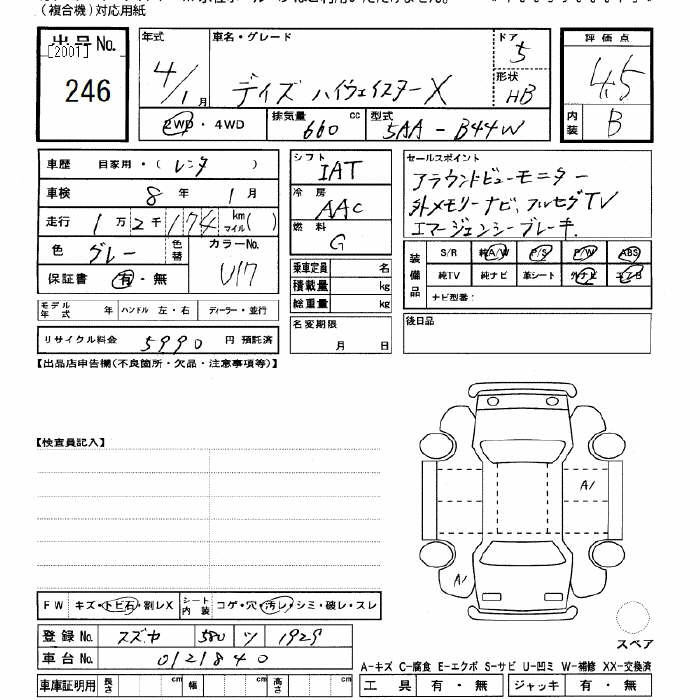 （複合機）対応用紙
出品No. 年式 車名・グレード ドア 評価点
[2001] 4/1月 デイズ ハイウェイスターX 5 4.5
246 形状 HB
2WD・4WD 排気量 660 cc 型式 5AA-B44W 内装 B
車歴 自家用・(レンタ) シフト IAT セールスポイント
車検 8年 1月 冷房 AAC アラウンドビューモニター
走行 1万2千174 km マイル( ) 燃料 G 外メモリーナビ、フルセグTV
エマージェンシーブレーキ.
色 グレー 色替 カラーNo. U17
保証書 有・無
乗車定員 名 装備品 S/R 純A/W P/S P/W ABS
積載量 kg 純TV 純ナビ 革シート 外ナビ エアB
総重量 kg ナビ型番:
モデル年式 年 ハンドル 左・右 ディーラー・並行
名変期限 月 日 後日品
リサイクル料金 5990 円 預託済
【出品店申告欄(不良箇所・欠品・注意事項等)】
A1
【検査員記入】
A1
FW キズ・トビ石・割レX シート内装 コゲ・穴・汚レ・シミ・破レ・スレ
登録No. スズカ 580 ツ 1929
スペア
車台No. 0121840
A-キズ C-腐食 E-エクボ S-サビ U-凹ミ W-補修 XX-交換済
車庫証明用 長さ cm 幅 cm 高さ cm 工具 有・無 ジャッキ 有・無